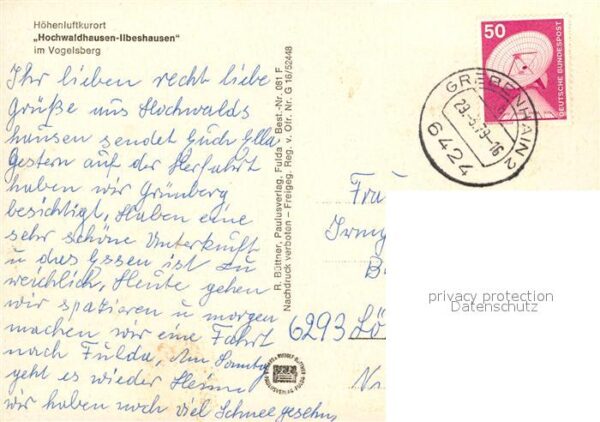 Höhenluftkurort
„Hochwaldhausen-Ilbeshausen"
im Vogelsberg
Ihr lieben recht liebe
Grüße aus Hochwalds
hausen sendet Euch Ella
Gestern auf der Herfahrt
haben wir Grünberg
besichtigt, Haben eine
sehr schöne Unterkunft
u das Essen ist zu
reichlich, Heute gehen
wir spazieren u morgen
machen wir eine Fahrt
nach Fulda, Am Sonntag
geht es wieder Heim
wir haben noch viel Schnee gesehn,
R. Büttner, Paulusverlag, Fulda Best.-Nr. 081 F
Nachdruck verboten – Freigeg. Reg. v. Ofr. Nr. G 16/52448
50
DEUTSCHE BUNDESPOST
GREBENHAIN 2
29.-5.79-16
6424
Frau
Irmg
6293 Lö
privacy protection
Datenschutz